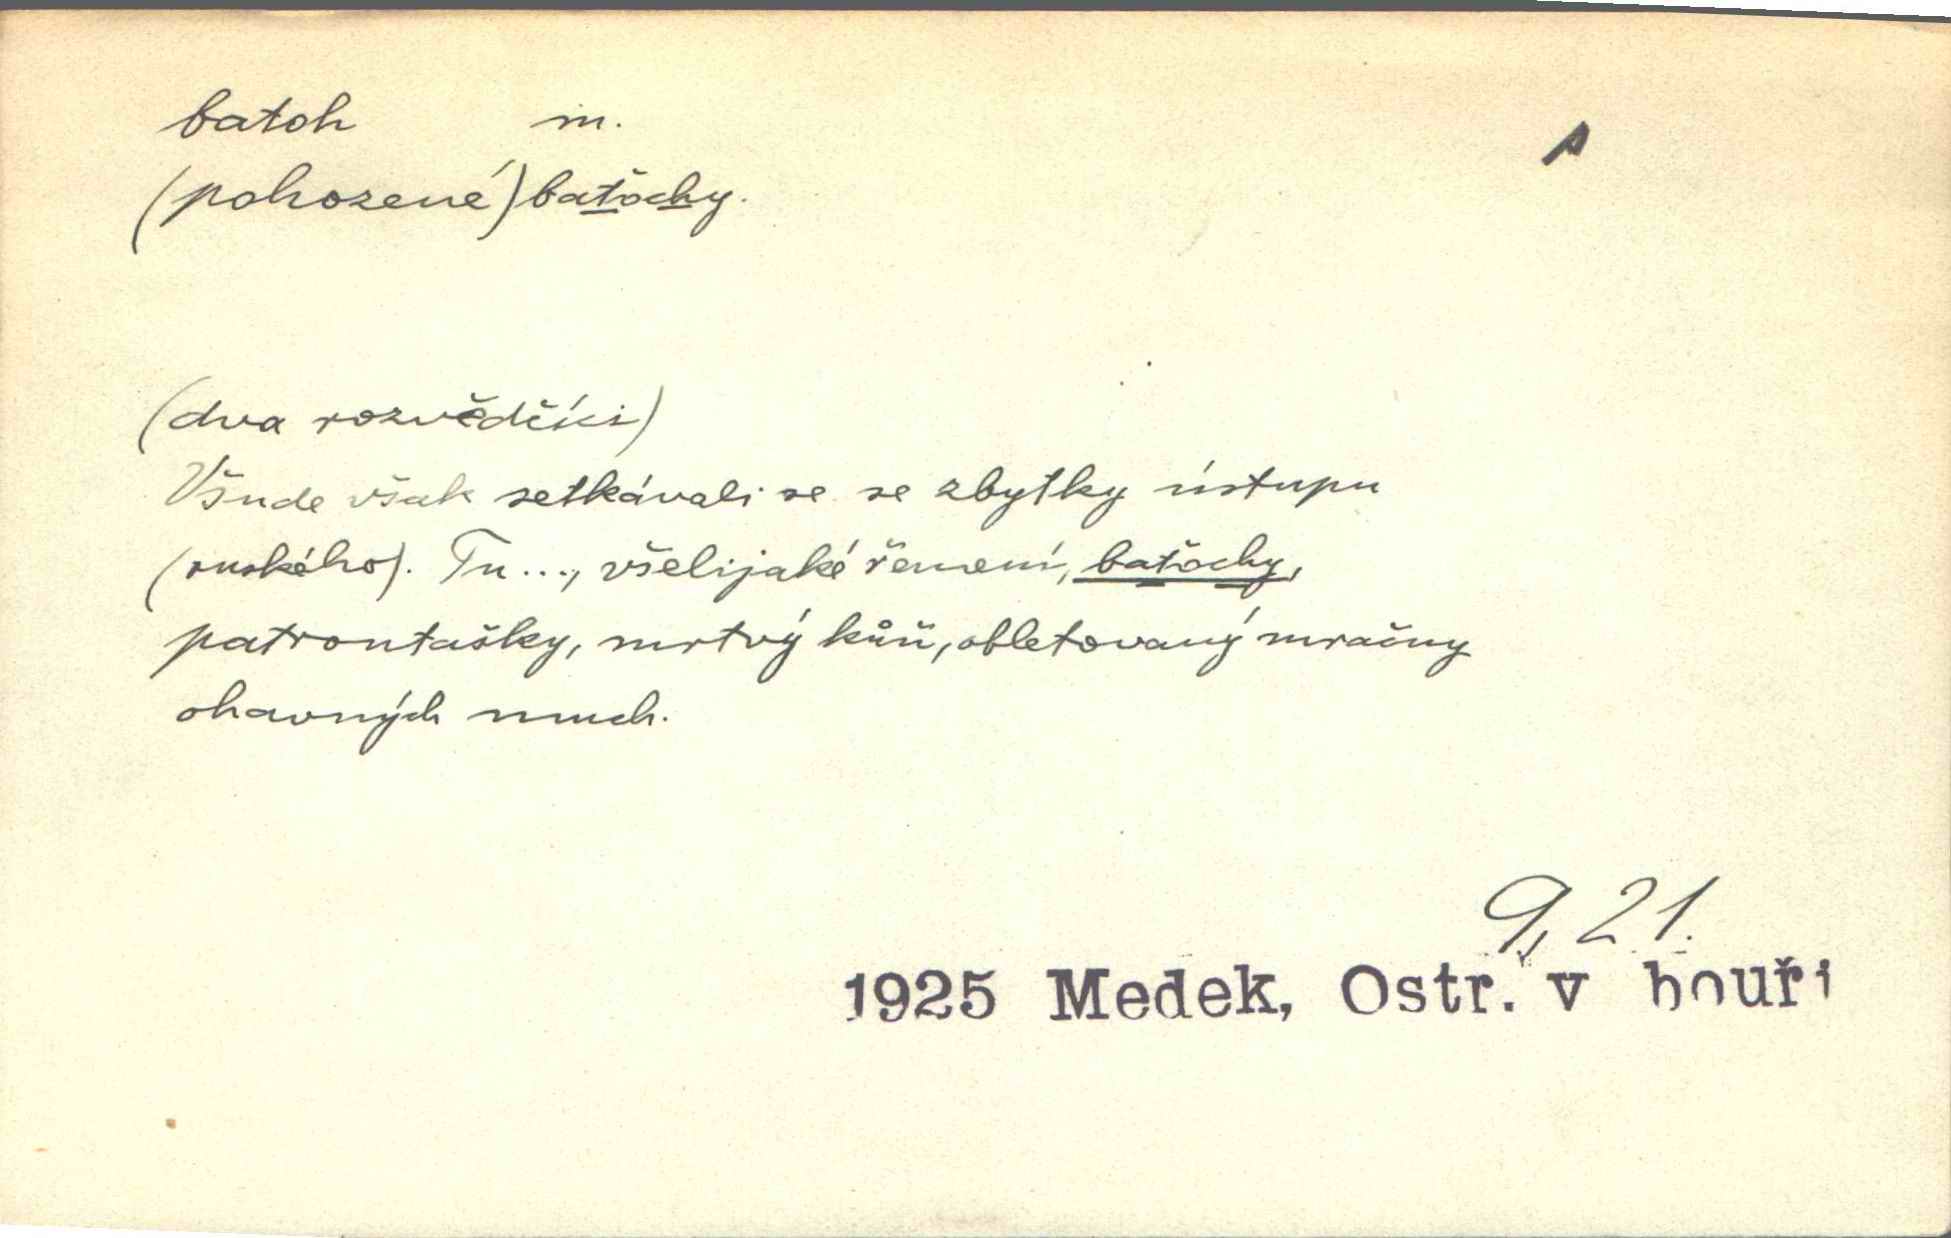 batoh m.
(pohozené) baťochy.
(dva rozvědčíci)
Všude však setkávali se se zbytky ústupu
(ruského). Tu..., všelijaké řemení, baťochy,
patrontašky, mrtvý kůň, obletovaný mračny
ohavných much.
9, 21.
1925 Medek, Ostr. v bouři